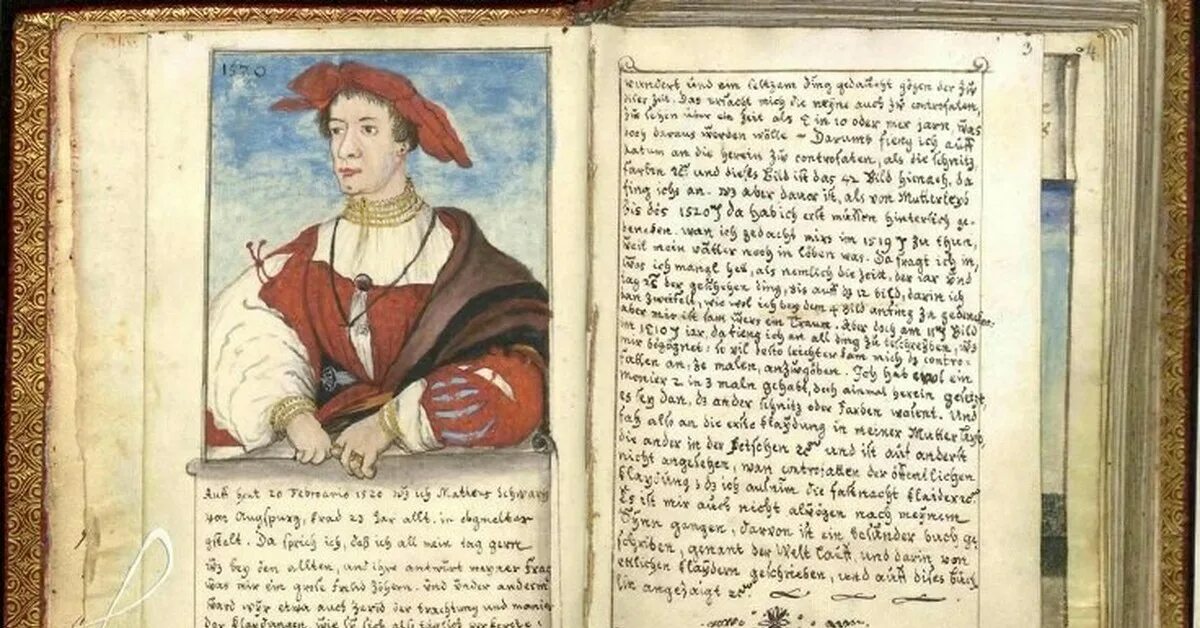 1520
Auff heut 20 Februario 1520 was ich Matheus Schwarz
von Augspurg, krad 23 Jar allt, in obgmelter
gstelt. Da sprich ich, daß ich all mein tag gern
was bey den allten, und ihre antwurt meyner frag
was mir ein große fraid zhören. und under anderm
ward wür etwa auch zered der trachtung und manier
der klaydungen, wie sich als täglich verkerete:
3
wundert und ein seltzam ding gedaucht gögen der zu
diser zeit. Das ursacht mich die meyne auch zu controfaten,
zu sehen über ein zeit als 5 in 10 oder mer jarn, was
doch daraus werden wölle ~ Darumb fieng ich auff
datum an die herein zu controfaten, als die schnitz,
farben &c und dieses Bild ist das 42 Bild hinach, da
fing ichs an. was aber davor ist, als von Mutterleyb
bis dos 1520 J da hab ich erst müssen hinterlich ge-
denken. wan ich gedacht mirs im 1519 J zu thun,
weil mein vatter noch in löben was. Da fragt ich in,
was ich mangl het, als nemlich die zeit, der jar und
tag &c der geschehen ding, bis auff das 12 bild, darin ich
han zweifelt, wie wol ich bey dem 4 Bild anfing zu gedencken
aber mir ist sam wers ein Traum. Aber doch am 11 Bild
im 1510 J jar, da fieng ich an all ding zu beschreyben, was
mir begögnet: so vil desto leichter kam mich das contro-
fatten an, ze malen, anzugöben. Ich hab wol ein
monier 2 in 3 maln gehabt, doch ainmal herein gesetzt,
es sey dan, das ander schnitz oder farben warent. Und
fach alls an die erste klaydung in meiner Mutter leyb,
die ander in der Fetschen &c und ist auf anderst
nicht angesehen, wan controfatten der öffentlichen
klaydung: das ich aufnim die fasnacht klaider &c.
Es ist mir auch nicht alwögen nach meynem
Synn gangen, darvon ist ein besunder buch ge-
schriben, genant der Welt Lauff, und darin von
endlichen klaydern geschrieben, und auff dises büch-
lin angezaigt &c
4